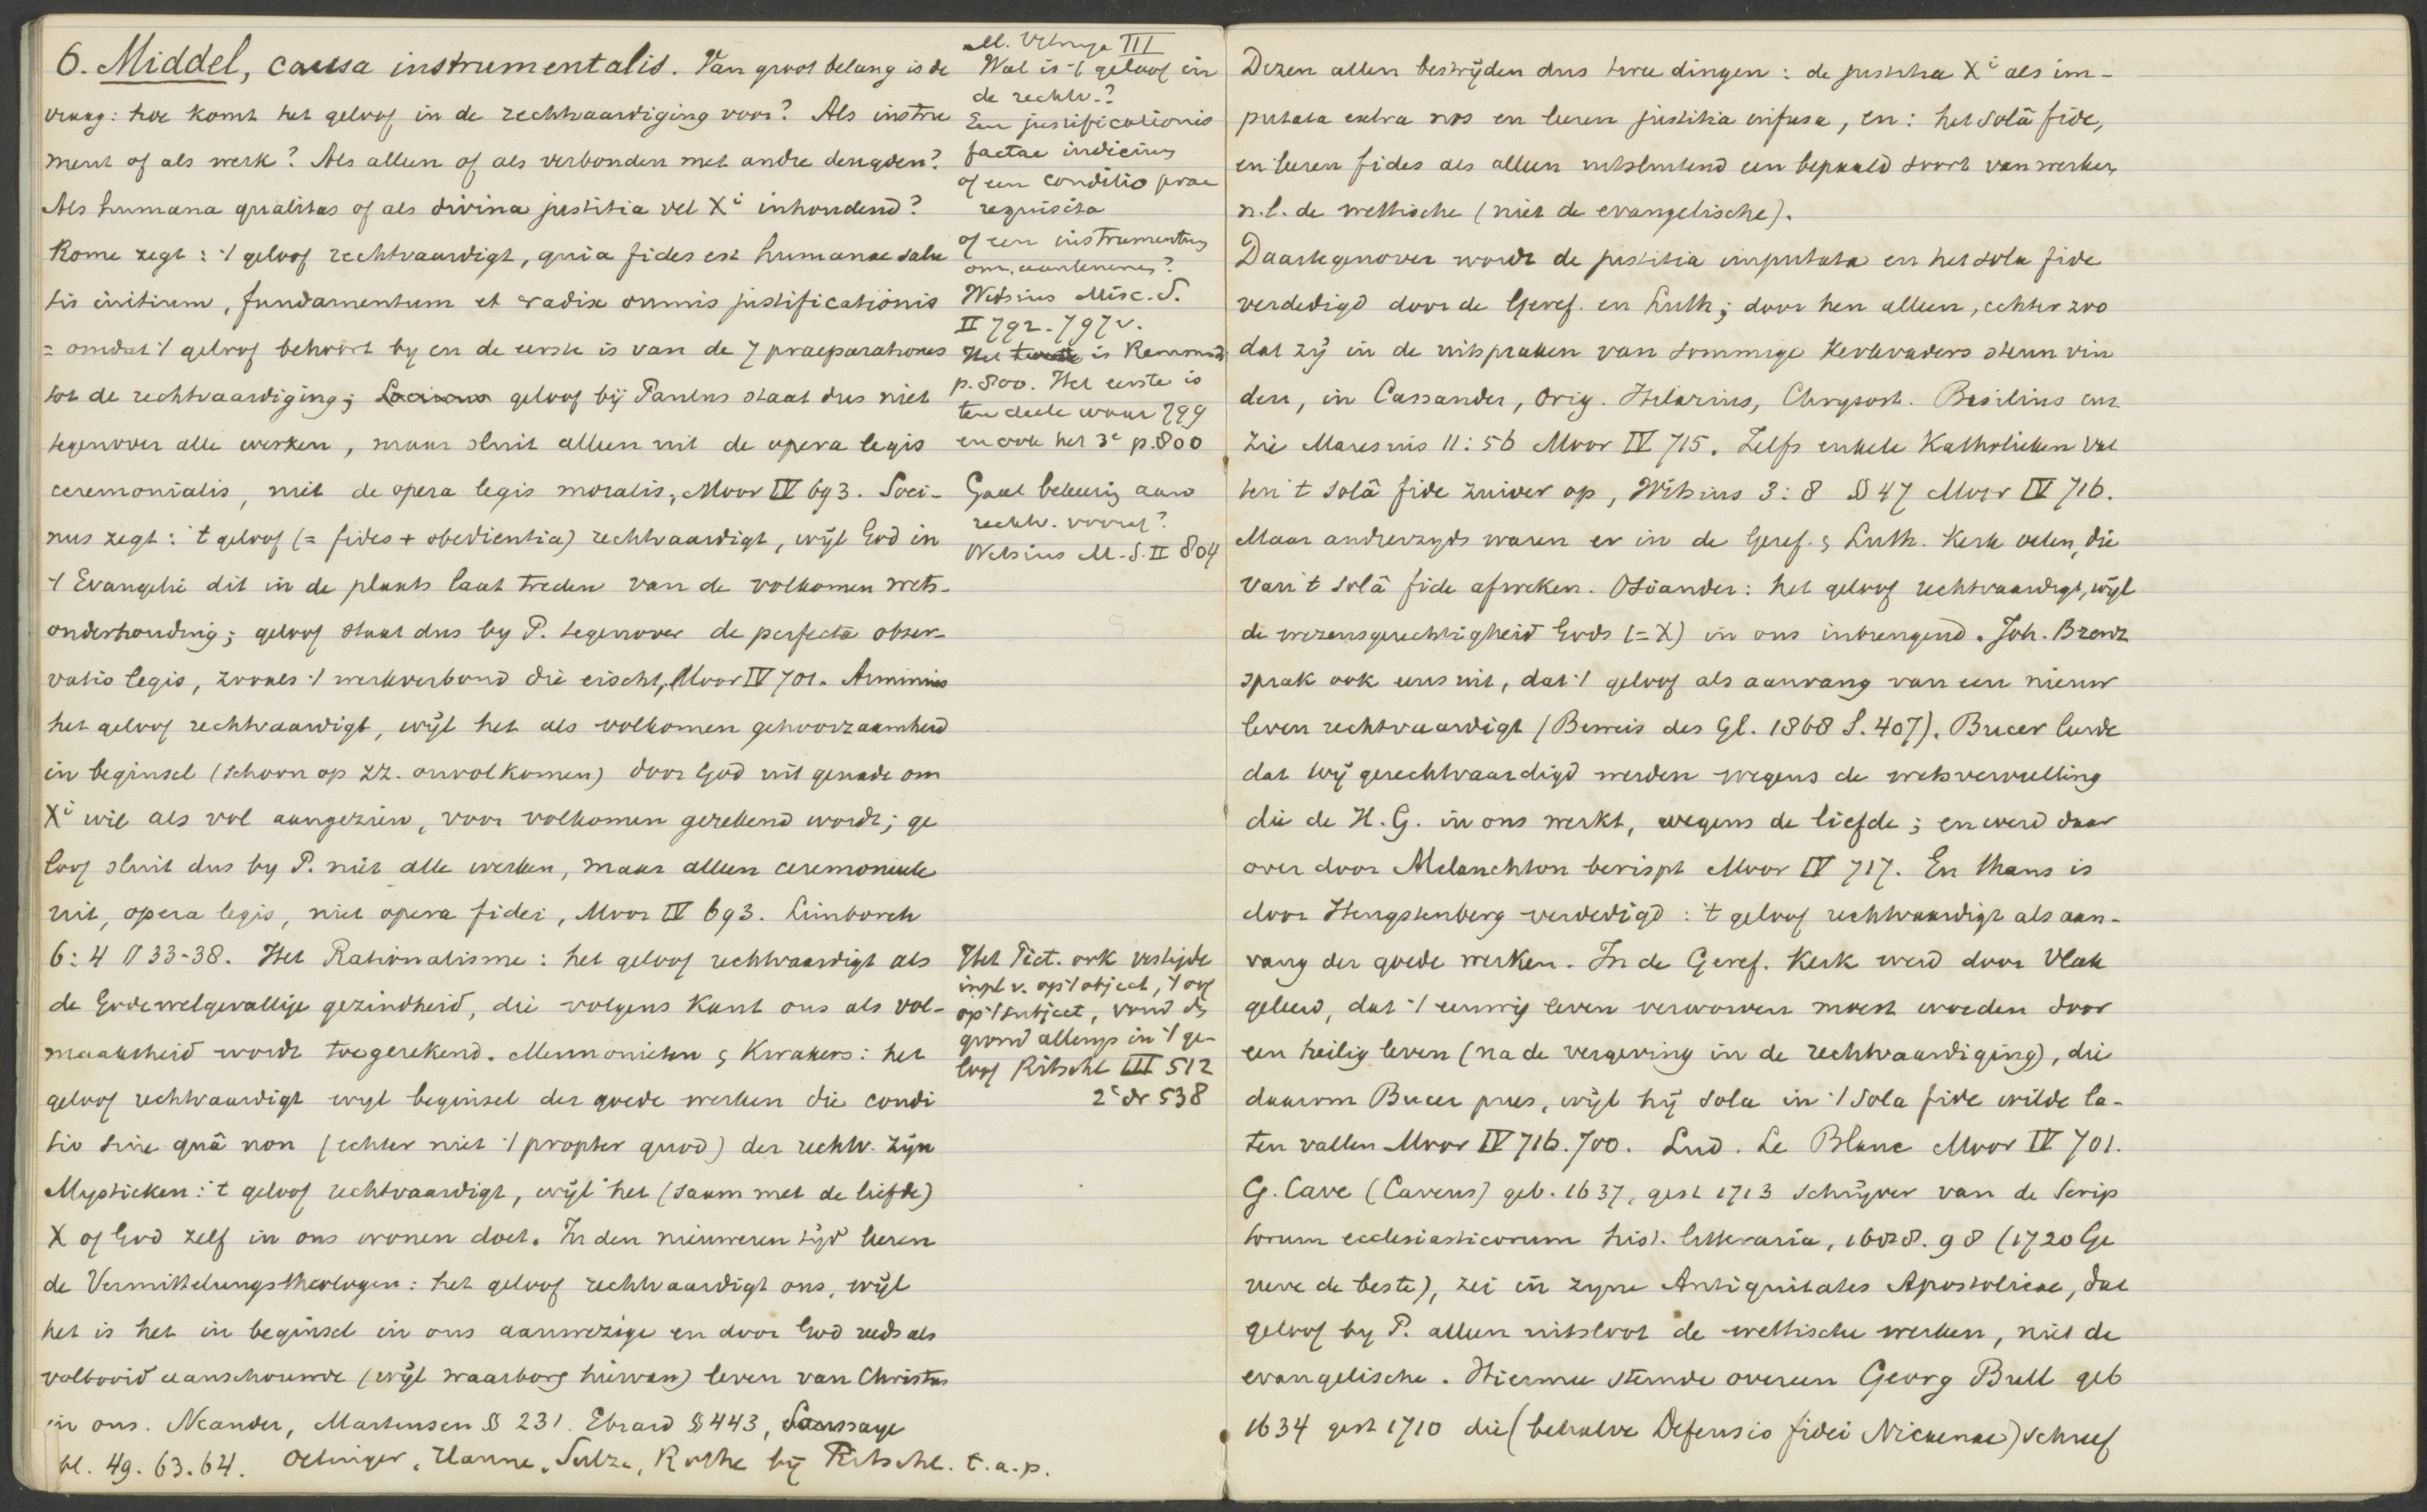 6. Middel, causa instrumentalis. Van groot belang is de
vraag: hoe komt het geloof in de rechtvaardiging voor? Als instru
ment of als werk? Als alleen of als verbonden met andre deugden?
Als humana qualitas of als divina justitia vel Xi inhoudend?
Rome zegt: 't geloof rechtvaardigt, quia fides est humanae salu
tis initium, fundamentum et radix omnis justificationis
= omdat 't geloof behoort by en de eerste is van de 7 praeparationes
tot de rechtvaardiging; geloof bij Paulus staat dus niet
tegenover alle werken, maar sluit alleen uit de opera legis
ceremonialis, niet de opera legis moralis, Moor IV 693. Soci-
nus zegt: 't geloof (= fides + obedientia) rechtvaardigt, wijl God in
't Evangelie dit in de plaats laat treden van de volkomen wets-
onderhouding; geloof staat dus by P. tegenover de perfecta obser-
vatio legis, zooals 't werkverbond die eischt, Moor IV 701. Arminius
het geloof rechtvaardigt, wijl het als volkomen gehoorzaamheid
in beginsel (schoon op zz. onvolkomen) door God uit genade om
Xi wil als vol aangezien, voor volkomen gerekend wordt; ge
loof sluit dus by P. niet alle werken, maar alleen ceremonieele
uit, opera legis, niet opera fidei, Moor IV 693. Limborch
6:4 § 33-38. Het Rationalisme: het geloof rechtvaardigt als
de Godewelgevallige gezindheid, die volgens Kant ons als vol-
maaktheid wordt toegerekend. Mennonieten & Kwakers: het
geloof rechtvaardigt wyl beginsel der goede werken die condi
tio sine quâ non (echter niet 't propter quod) der rechtv. zijn
Mystieken: 't geloof rechtvaardigt, wijl het (saam met de liefde)
X of God zelf in ons wonen doet. In den nieuweren tijd leeren
de Vermittelungstheologen: het geloof rechtvaardigt ons, wijl
het is het in beginsel in ons aanwezige en door God reeds als
voltooid aanschouwde (wijl waarborg hiervan) leven van Christus
in ons. Neander, Martensen § 231. Ebrard § 443, Saussaye
bl. 49. 63. 64. Oetinger, Hanne, Sulze, Rothe bij Ritschl. t.a.p.
M. Vitringa III
Wat is 't geloof in
de rechtv.?
Een justificationis
factae indicium
of een conditio prae
requisita
of een instrumentum
om. aantenemen?
Witsius Misc. S.
II 792. 797v.
Het tweede is Remonst
p. 800. Het eerste is
ten deele waar 799
en ook het 3e p. 800
Gaat bekeering aan
rechtv. vooraf?
Witsius M. S. II 804
Het Piet. ook
inpl v. op 't object, 't oog
op 't subject, vond de
grond allengs in 't ge-
loof Ritschl III 512
2e dr 538
Dezen allen bestrijden dus twee dingen: de justitia Xi als im-
putata extra nos en leeren justitia infusa, en: het solâ fide,
en leeren fides als alleen uitsluitend een bepaald soort van werken,
n.l. de wettische (niet de evangelische).
Daartegenover wordt de justitia imputata en het sola fide
verdedigd door de Geref. en Luth; door hen alleen, echter zoo
dat zij in de uitspraken van sommige Kerkvaders steun vin
den, in Cassander, Orig. Hilarius, Chrysost. Basilius enz
Zie Maresius 11:56 Moor IV 715. Zelfs enkele Katholieken vat
ten 't solâ fide zuiver op, Witsius 3:8 § 47 Moor IV 716.
Maar anderzyds waren er in de Geref. & Luth. Kerk velen, die
van 't solâ fide afweken. Osiander: het geloof rechtvaardigt, wijl
de wezensgerechtigheid Gods (= X) in ons inbrengend. Joh. Brenz
sprak ook eens uit, dat 't geloof als aanvang van een nieuw
leven rechtvaardigt (Beweis des Gl. 1868 S. 407). Bucer leerde
dat wij gerechtvaardigd werden wegens de wetsvervulling
die de H. G. in ons werkt, wegens de liefde; en werd daar
over door Melanchton berispt Moor IV 717. En thans is
door Hengstenberg verdedigd: 't geloof rechtvaardigt als aan-
vang der goede werken. In de Geref. Kerk werd door Vlak
geleerd, dat 't eeuwig leven verworven moest worden door
een heilig leven (na de vergeving in de rechtvaardiging), die
daarom Bucer prees, wijl hij sola in 't sola fide wilde la-
ten vallen Moor IV 716. 700. Lud. Le Blanc Moor IV 701.
G. Cave (Caveus) geb. 1637, gest 1713 schrijver van de Scrip
torum ecclesiasticorum hist. litteraria, 1688. 98 (1720 Ge
neve de beste), zei in zyne Antiquitates Apostolicae, dat
geloof by P. alleen uitsloot de wettische werken, niet de
evangelische. Hiermee stemde overeen Georg Bull geb
1634 gest 1710 die (behalve Defensio fidei Nicaenae) schreef